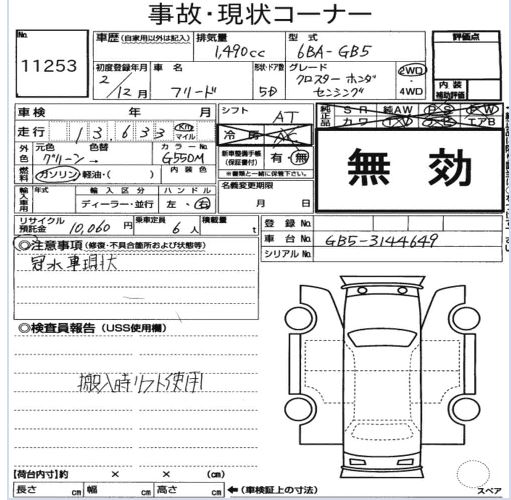 事故・現状コーナー
No.
11253
車歴 (自家用以外は記入)
排気量
1,490cc
型式
6BA-GB5
評価点
初度登録年月
2/12月
車名
フリード
形状・ドア数
5D
グレード
クロスター ホンダ
センシング
2WD
・
4WD
内装
補助評価
車検 年 月
シフト
AT
純正品
SR 純AW PS PW
カワ TV ナビ エアB
走行 13,633 Km マイル
冷房 AC
外色
元色
グリーン→
色替
カラーNo.
G550M
新車整備手帳
(保証書付)
有・無
※書類と一緒に保管して下さい。
無効
燃料
ガソリン・軽油・( )
内装色
( )
名義変更期限
月 日
輸入車用
年式
輸入区分
ディーラー・並行
ハンドル
左・右
リサイクル
預託金
10,060円
乗車定員
6人
積載量
t
登録No.
車台No.
GB5-3144649
シリアルNo.
◎注意事項 (修復・不具合箇所および状態等)
冠水車現状
◎検査員報告 (USS使用欄)
搬入時リフト使用
【荷台内寸】約 × × (cm)
長さ cm 幅 cm 高さ cm
←(車検証上の寸法)
スペア